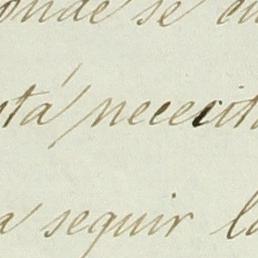 onde se en
stá necesita
a seguir la